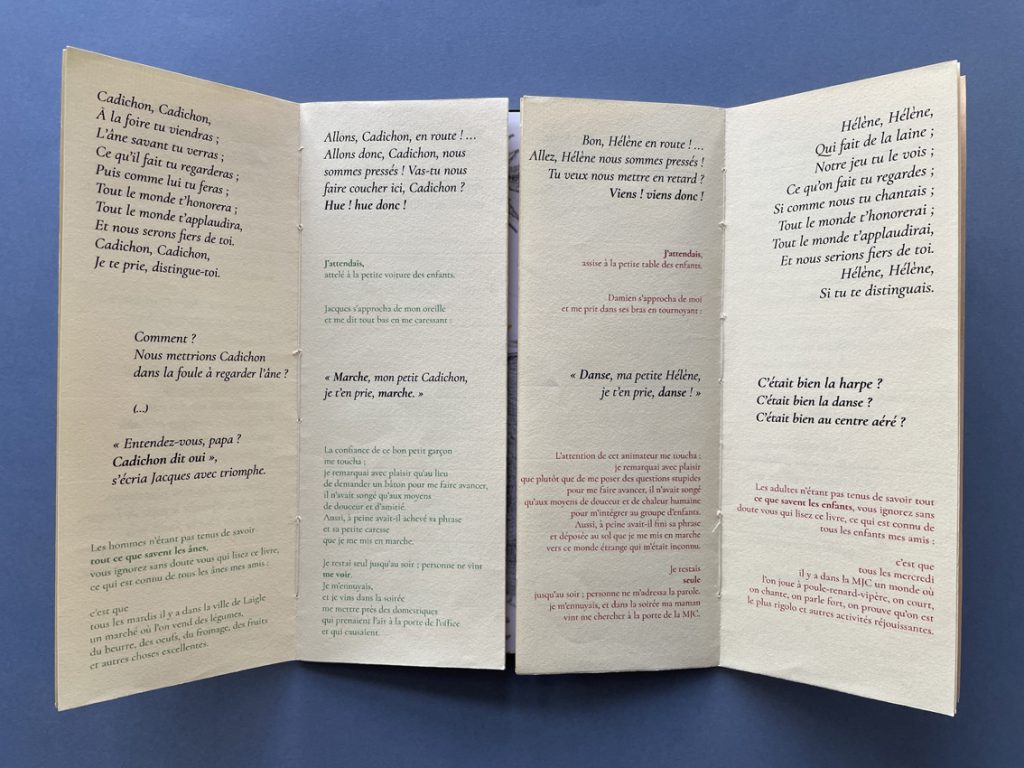 Cadichon, Cadichon,
À la foire tu viendras ;
L'âne savant tu verras ;
Ce qu'il fait tu regarderas ;
Puis comme lui tu feras ;
Tout le monde t'honorera ;
Tout le monde t'applaudira,
Et nous serons fiers de toi.
Cadichon, Cadichon,
Je te prie, distingue-toi.
Comment ?
Nous mettrions Cadichon
dans la foule à regarder l'âne ?
(...)
« Entendez-vous, papa ?
Cadichon dit oui »,
s'écria Jacques avec triomphe.
Les hommes n'étant pas tenus de savoir
tout ce que savent les ânes,
vous ignorez sans doute vous qui lisez ce livre,
ce qui est connu de tous les ânes mes amis :
c'est que
tous les mardis il y a dans la ville de Laigle
un marché où l'on vend des légumes,
du beurre, des oeufs, du fromage, des fruits
et autres choses excellentes.
Allons, Cadichon, en route ! ...
Allons donc, Cadichon, nous
sommes pressés ! Vas-tu nous
faire coucher ici, Cadichon ?
Hue ! hue donc !
J'attendais,
attelé à la petite voiture des enfants.
Jacques s'approcha de mon oreille
et me dit tout bas en me caressant :
« Marche, mon petit Cadichon,
je t'en prie, marche. »
La confiance de ce bon petit garçon
me toucha ;
je remarquai avec plaisir qu'au lieu
de demander un bâton pour me faire avancer,
il n'avait songé qu'aux moyens
de douceur et d'amitié.
Aussi, à peine avait-il achevé sa phrase
et sa petite caresse
que je me mis en marche.
Je restai seul jusqu'au soir ; personne ne vint
me voir.
Je m'ennuyais,
et je vins dans la soirée
me mettre près des domestiques
qui prenaient l'air à la porte de l'office
et qui causaient.
Bon, Hélène en route ! ...
Allez, Hélène nous sommes pressés !
Tu veux nous mettre en retard ?
Viens ! viens donc !
J'attendais,
assise à la petite table des enfants.
Damien s'approcha de moi
et me prit dans ses bras en tournoyant :
« Danse, ma petite Hélène,
je t'en prie, danse ! »
L'attention de cet animateur me toucha :
je remarquai avec plaisir
que plutôt que de me poser des questions stupides
pour me faire avancer, il n'avait songé
qu'aux moyens de douceur et de chaleur humaine
pour m'intégrer au groupe d'enfants.
Aussi, à peine avait-il fini sa phrase
et déposée au sol que je me mis en marche
vers ce monde étrange qui m'était inconnu.
Je restais
seule
jusqu'au soir ; personne ne m'adressa la parole.
je m'ennuyais, et dans la soirée ma maman
vint me chercher à la porte de la MJC.
Hélène, Hélène,
Qui fait de la laine ;
Notre jeu tu le vois ;
Ce qu'on fait tu regardes ;
Si comme nous tu chantais ;
Tout le monde t'honorerai ;
Tout le monde t'applaudirai,
Et nous serions fiers de toi.
Hélène, Hélène,
Si tu te distinguais.
C'était bien la harpe ?
C'était bien la danse ?
C'était bien au centre aéré ?
Les adultes n'étant pas tenus de savoir tout
ce que savent les enfants, vous ignorez sans
doute vous qui lisez ce livre, ce qui est connu de
tous les enfants mes amis :
c'est que
tous les mercredi
il y a dans la MJC un monde où
l'on joue à poule-renard-vipère, on court,
on chante, on parle fort, on prouve qu'on est
le plus rigolo et autres activités réjouissantes.